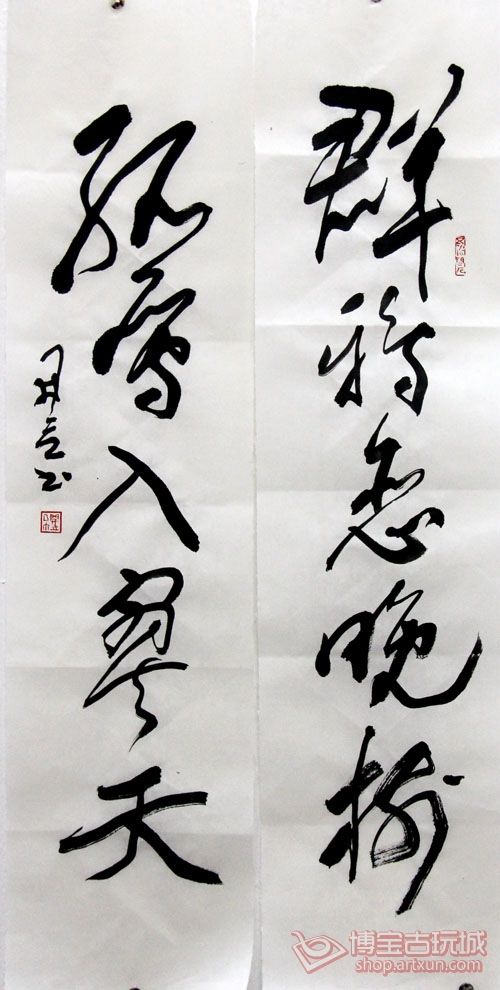 群鸦恋晚树
孤雁入寥天
书
博宝古玩城
shop.artxun.com